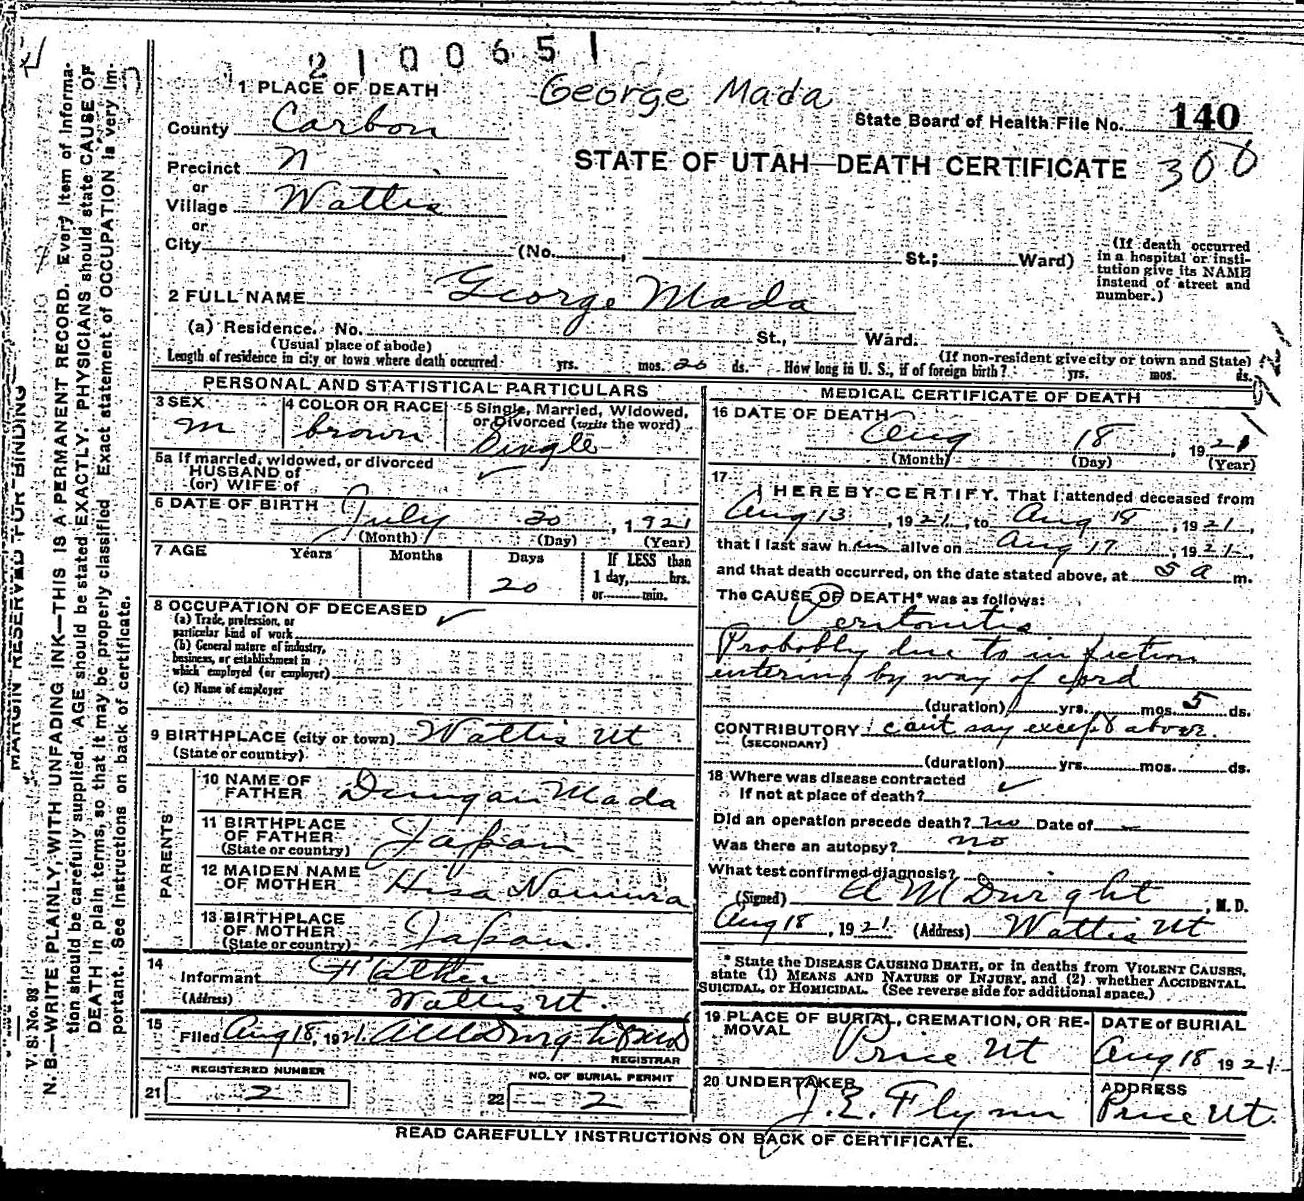 2100651
George Mada
1 PLACE OF DEATH
County Carbon
State Board of Health File No. 140
Precinct n
STATE OF UTAH—DEATH CERTIFICATE 300
or
Village Wattis
or
City (No. , St.; Ward)
(If death occurred in a hospital or institution give its NAME instead of street and number.)
2 FULL NAME George Mada
(a) Residence. No. St., Ward.
(Usual place of abode) (If non-resident give city or town and State)
Length of residence in city or town where death occurred yrs. mos. 20 ds. How long in U. S., if of foreign birth? yrs. mos. ds.
PERSONAL AND STATISTICAL PARTICULARS
3 SEX m
4 COLOR OR RACE brown
5 Single, Married, Widowed, or Divorced (write the word) Single
5a If married, widowed, or divorced
HUSBAND of
(or) WIFE of
6 DATE OF BIRTH July 20, 1921
(Month) (Day) (Year)
7 AGE Years Months Days 20 If LESS than 1 day, hrs. or min.
8 OCCUPATION OF DECEASED
(a) Trade, profession, or
particular kind of work
(b) General nature of industry,
business, or establishment in
which employed (or employer)
(c) Name of employer
9 BIRTHPLACE (city or town) Wattis Ut
(State or country)
PARENTS
10 NAME OF FATHER Mada
11 BIRTHPLACE OF FATHER (State or country) Japan
12 MAIDEN NAME OF MOTHER Hisa Nomura
13 BIRTHPLACE OF MOTHER (State or country) Japan.
14 Informant Father
(Address) Wattis Ut.
15 Filed Aug 18, 1921. REGISTRAR
REGISTERED NUMBER
21 2
NO. OF BURIAL PERMIT
22 2
MEDICAL CERTIFICATE OF DEATH
16 DATE OF DEATH Aug 18, 1921
(Month) (Day) (Year)
17 I HEREBY CERTIFY. That I attended deceased from
Aug 13, 1921, to Aug 18, 1921,
that I last saw him alive on Aug 17, 1921,
and that death occurred, on the date stated above, at 5 a m.
The CAUSE OF DEATH* was as follows:
Peritonitis
Probably due to infiction
entering by way of cord
(duration) yrs. mos. 5 ds.
CONTRIBUTORY cant say except above.
(SECONDARY)
(duration) yrs. mos. ds.
18 Where was disease contracted
If not at place of death?
Did an operation precede death? no Date of
Was there an autopsy? no
What test confirmed diagnosis?
(Signed) A M Dwight, M. D.
Aug 18, 1921 (Address) Wattis Ut
* State the DISEASE CAUSING DEATH, or in deaths from VIOLENT CAUSES,
state (1) MEANS AND NATURE OF INJURY, and (2) whether ACCIDENTAL,
SUICIDAL, or HOMICIDAL. (See reverse side for additional space.)
19 PLACE OF BURIAL, CREMATION, OR REMOVAL Price Ut
DATE of BURIAL Aug 18 1921
20 UNDERTAKER J. E. Flynn
ADDRESS Price Ut.
READ CAREFULLY INSTRUCTIONS ON BACK OF CERTIFICATE.
MARGIN RESERVED FOR BINDING
V. S. No. 93
N. B.—WRITE PLAINLY, WITH UNFADING INK—THIS IS A PERMANENT RECORD. Every item of informa-
tion should be carefully supplied. AGE should be stated EXACTLY. PHYSICIANS should state CAUSE OF
DEATH in plain terms, so that it may be properly classified. Exact statement of OCCUPATION is very im-
portant. See instructions on back of certificate.